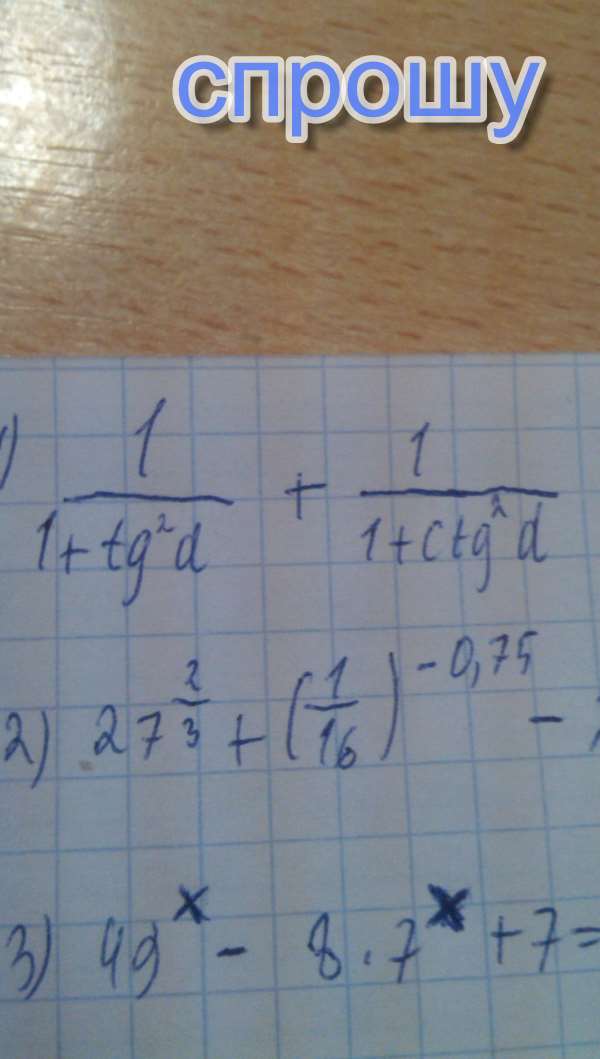 спрошу
1) 1/(1+tg²d) + 1/(1+ctg²d)
2) 27^(2/3) + (1/16)^(-0,75) -
3) 49^x - 8·7^x + 7 =